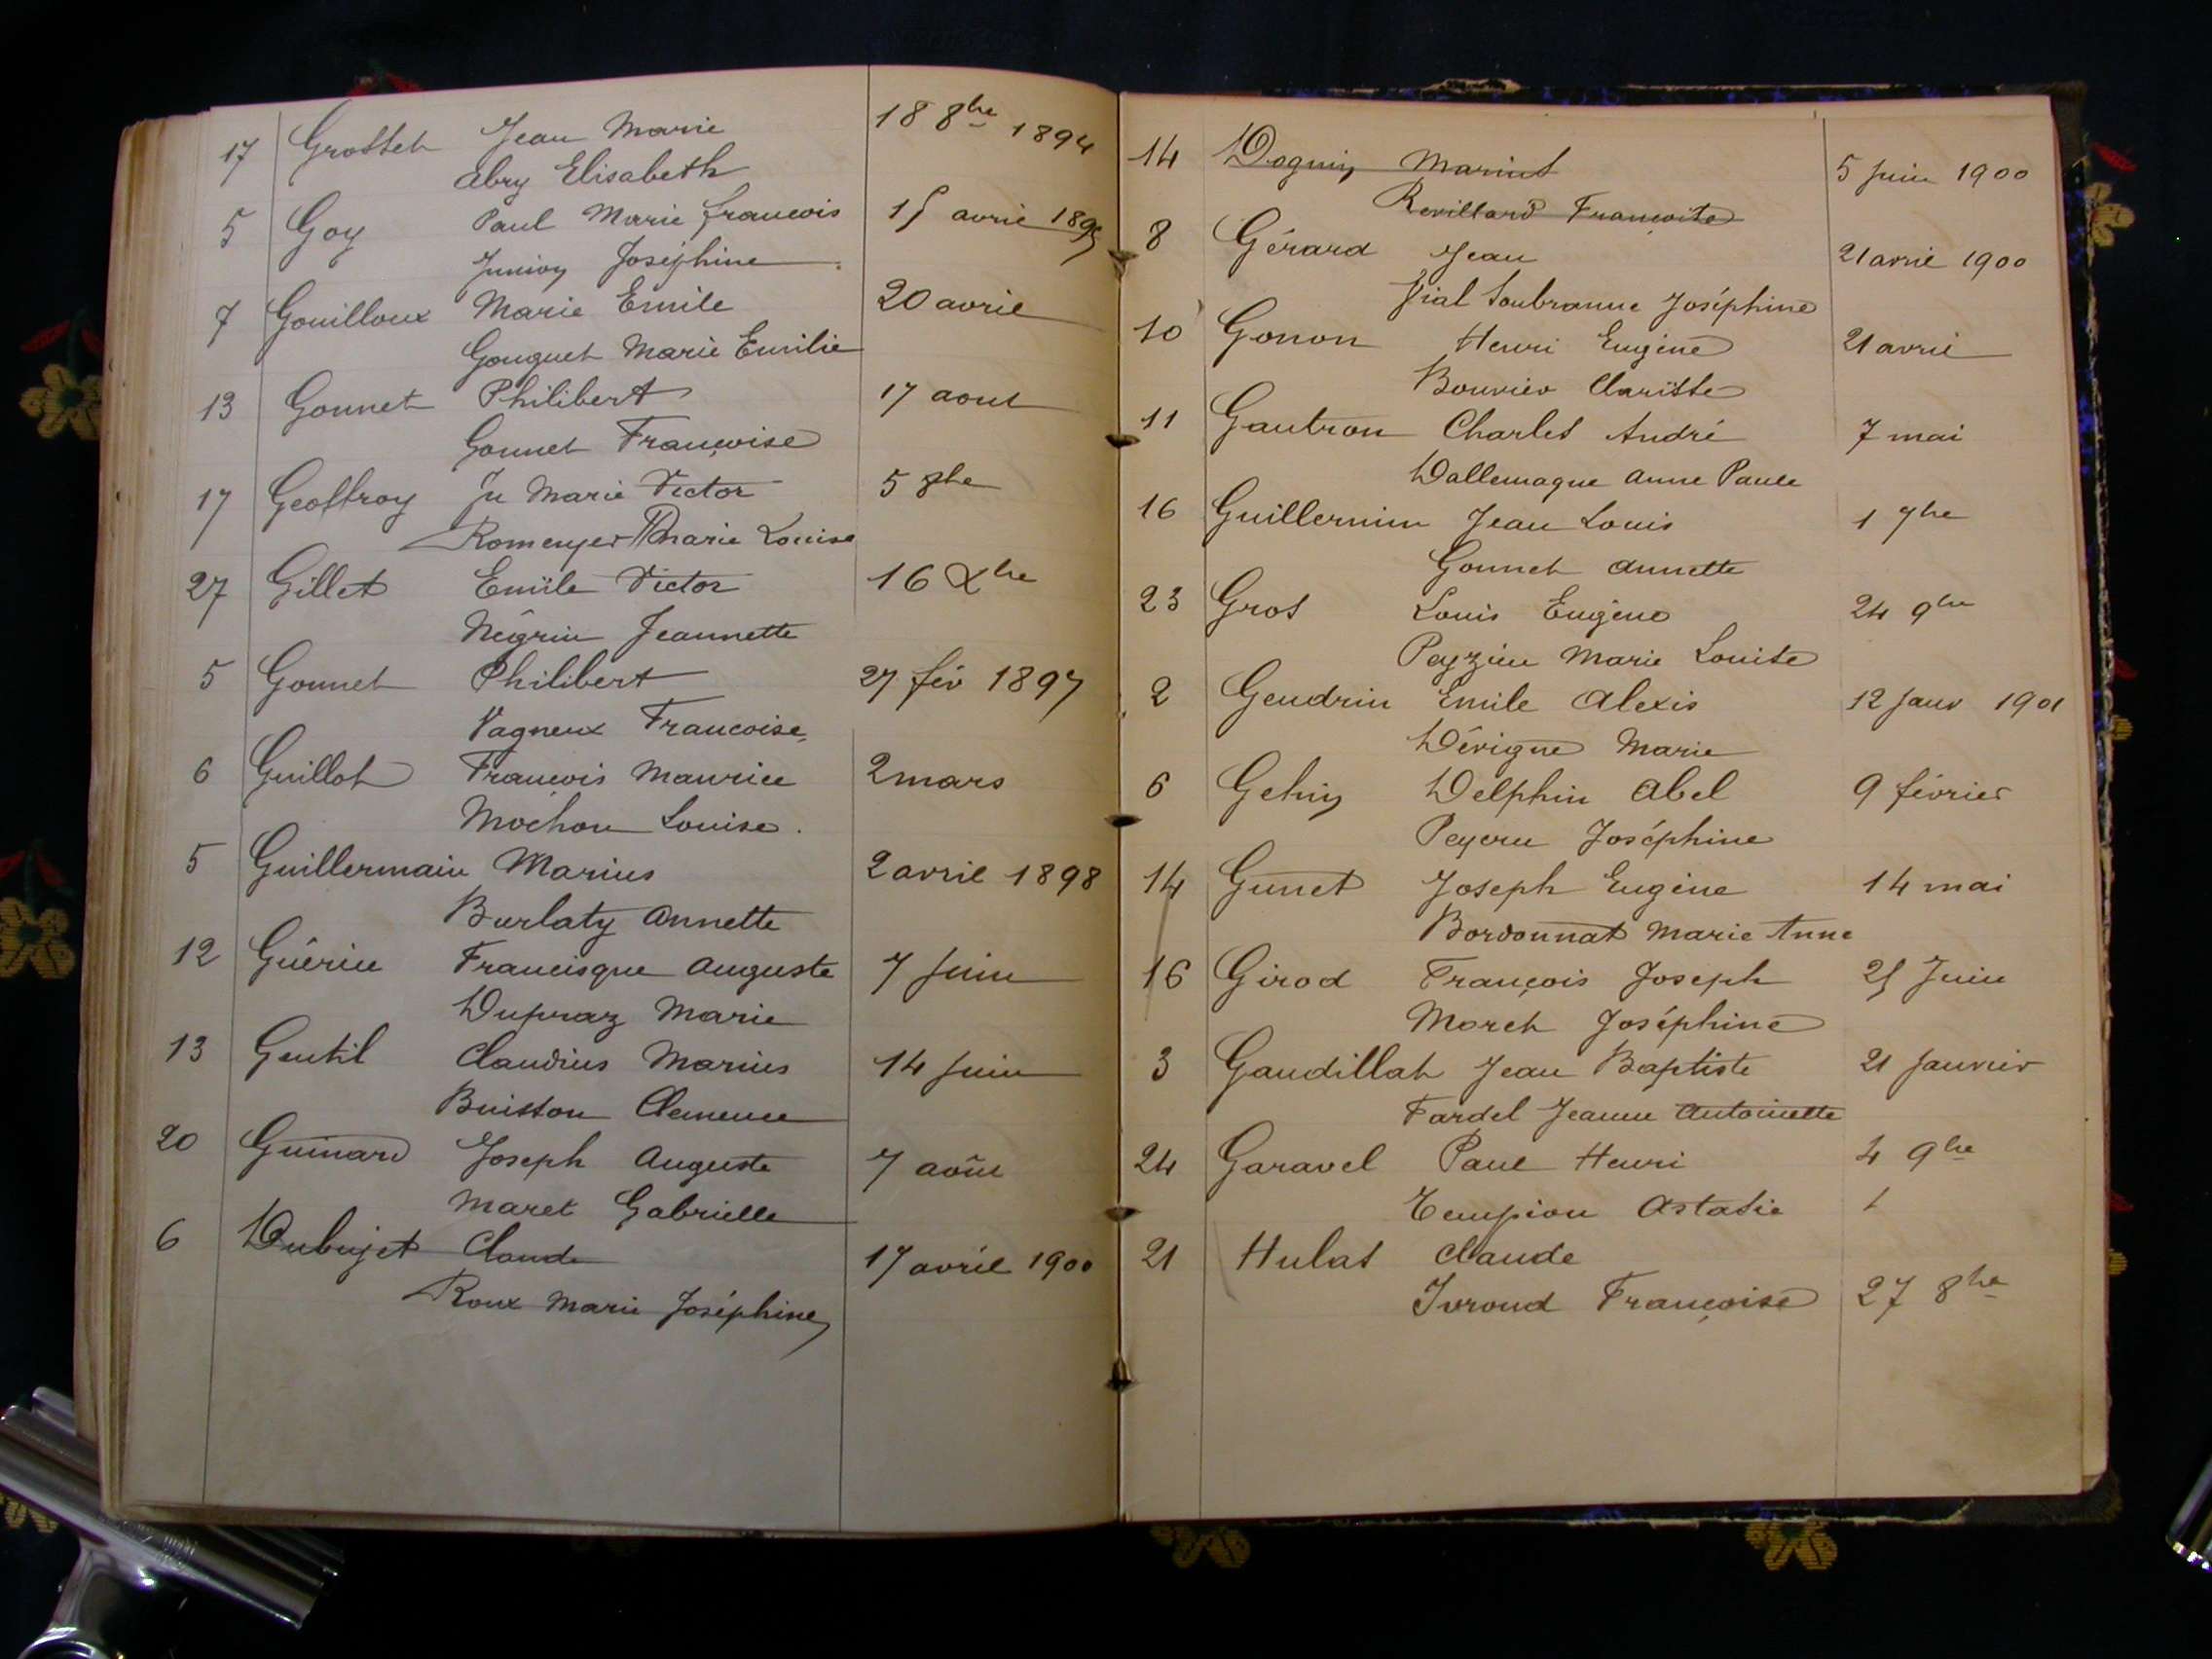 17 Grosset Jean Marie 18 8bre 1894
Abry Elisabeth
5 Goy Paul Marie francois 15 avril 1895
Junion Joséphine
7 Gouilloux Marie Emile 20 avril
Gouguet Marie Emilie
13 Gonnet Philibert 17 aout
Gonnet Françoise
17 Geoffroy Jn Marie Victor 5 8bre
Romeyer Marie Louise
27 Gillet Emile Victor 16 Xbre
Négrin Jeannette
5 Gonnet Philibert 27 fév 1897
Vagneux Francoise
6 Guillot François Maurice 2 mars
Mochon Louise.
5 Guillermain Marius 2 avril 1898
Burlaty Annette
12 Guérin Francisque Auguste 7 Juin
Dupraz Marie
13 Gentil Claudius Marius 14 Juin
Buisson Clemence
20 Guinard Joseph Auguste 7 août
Maret Gabrielle
6 Dubujet Claude 17 avril 1900
Roux Marie Joséphine
14 Doguin Marius 5 Juin 1900
Revillard Françoise
8 Gérard Jean 21 avril 1900
Vial Soubranne Joséphine
10 Gonon Henri Eugène 21 avril
Bouvier Clarisse
11 Gautron Charles André 7 mai
Dallemagne Anne Paule
16 Guillermin Jean Louis 1 7bre
Gonnet Annette
23 Gros Louis Eugène 24 9bre
Peyzieu Marie Louise
2 Gendrin Emile Alexis 12 Janv 1901
Dévigne Marie
6 Gehin Delphin Abel 9 février
Joséphine
14 Gunet Joseph Eugène 14 mai
Bordonnat Marie Anne
16 Girod François Joseph 25 Juin
Moret Joséphine
3 Gaudillat Jean Baptiste 21 Janvier
Fardel Jeanne Antoinette
24 Garavel Paul Henri 4 9bre
Tempion Astasie
21 Hulas Claude
Ivroud Françoise 27 8bre